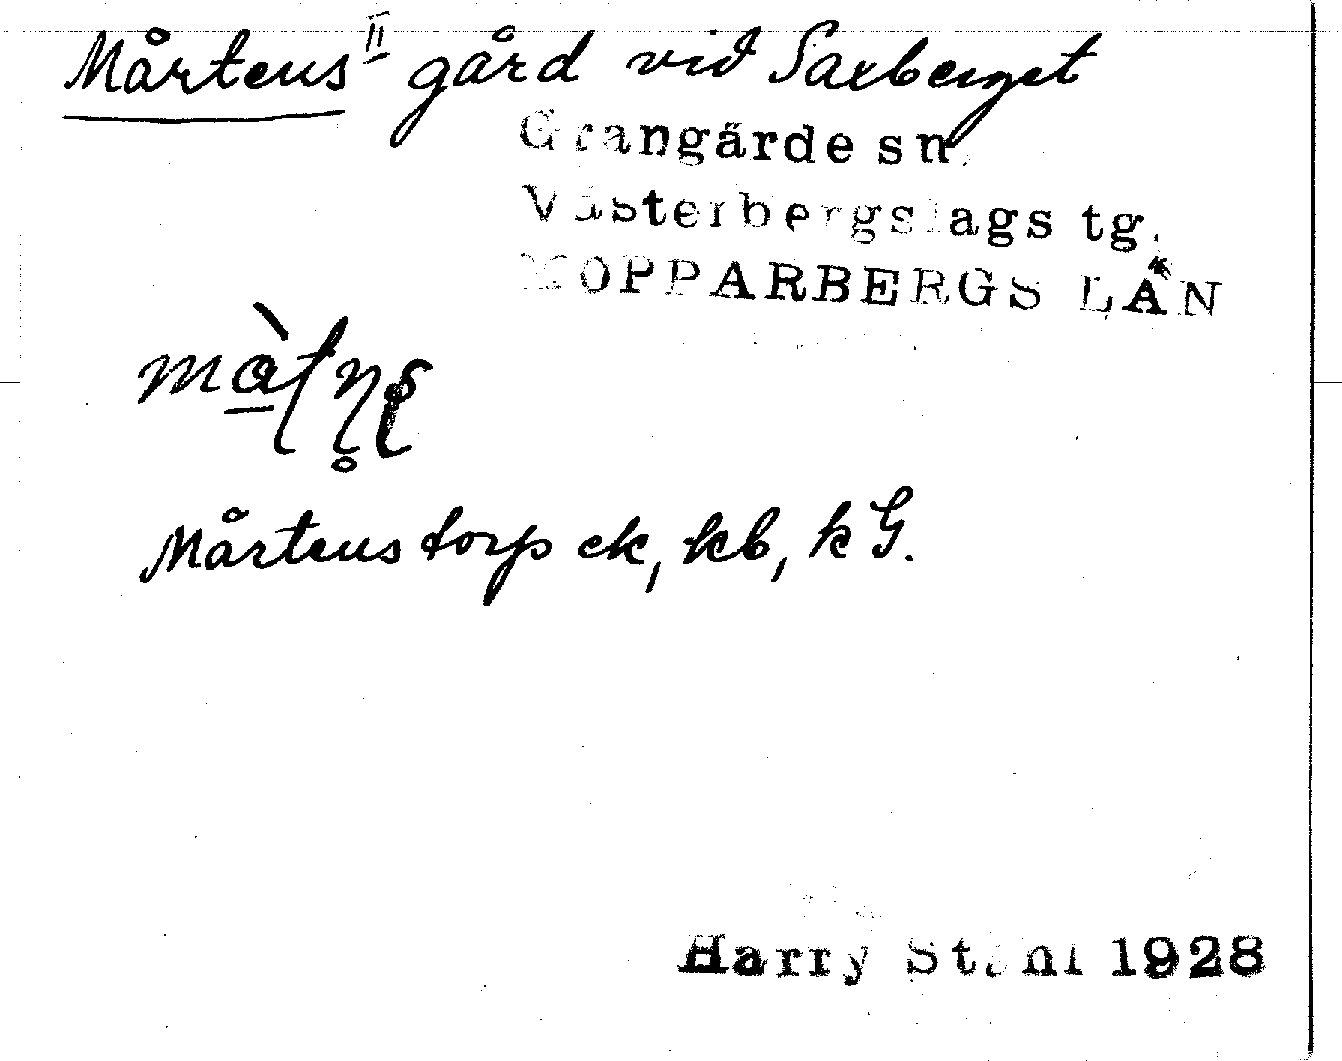 Mårtens II gård vid Saxberget
Grangärde sn.
Västerbergslags tg.
KOPPARBERGS LÄN
Mårtenstorp ek, kb, k G.
Harry Ståhl 1928